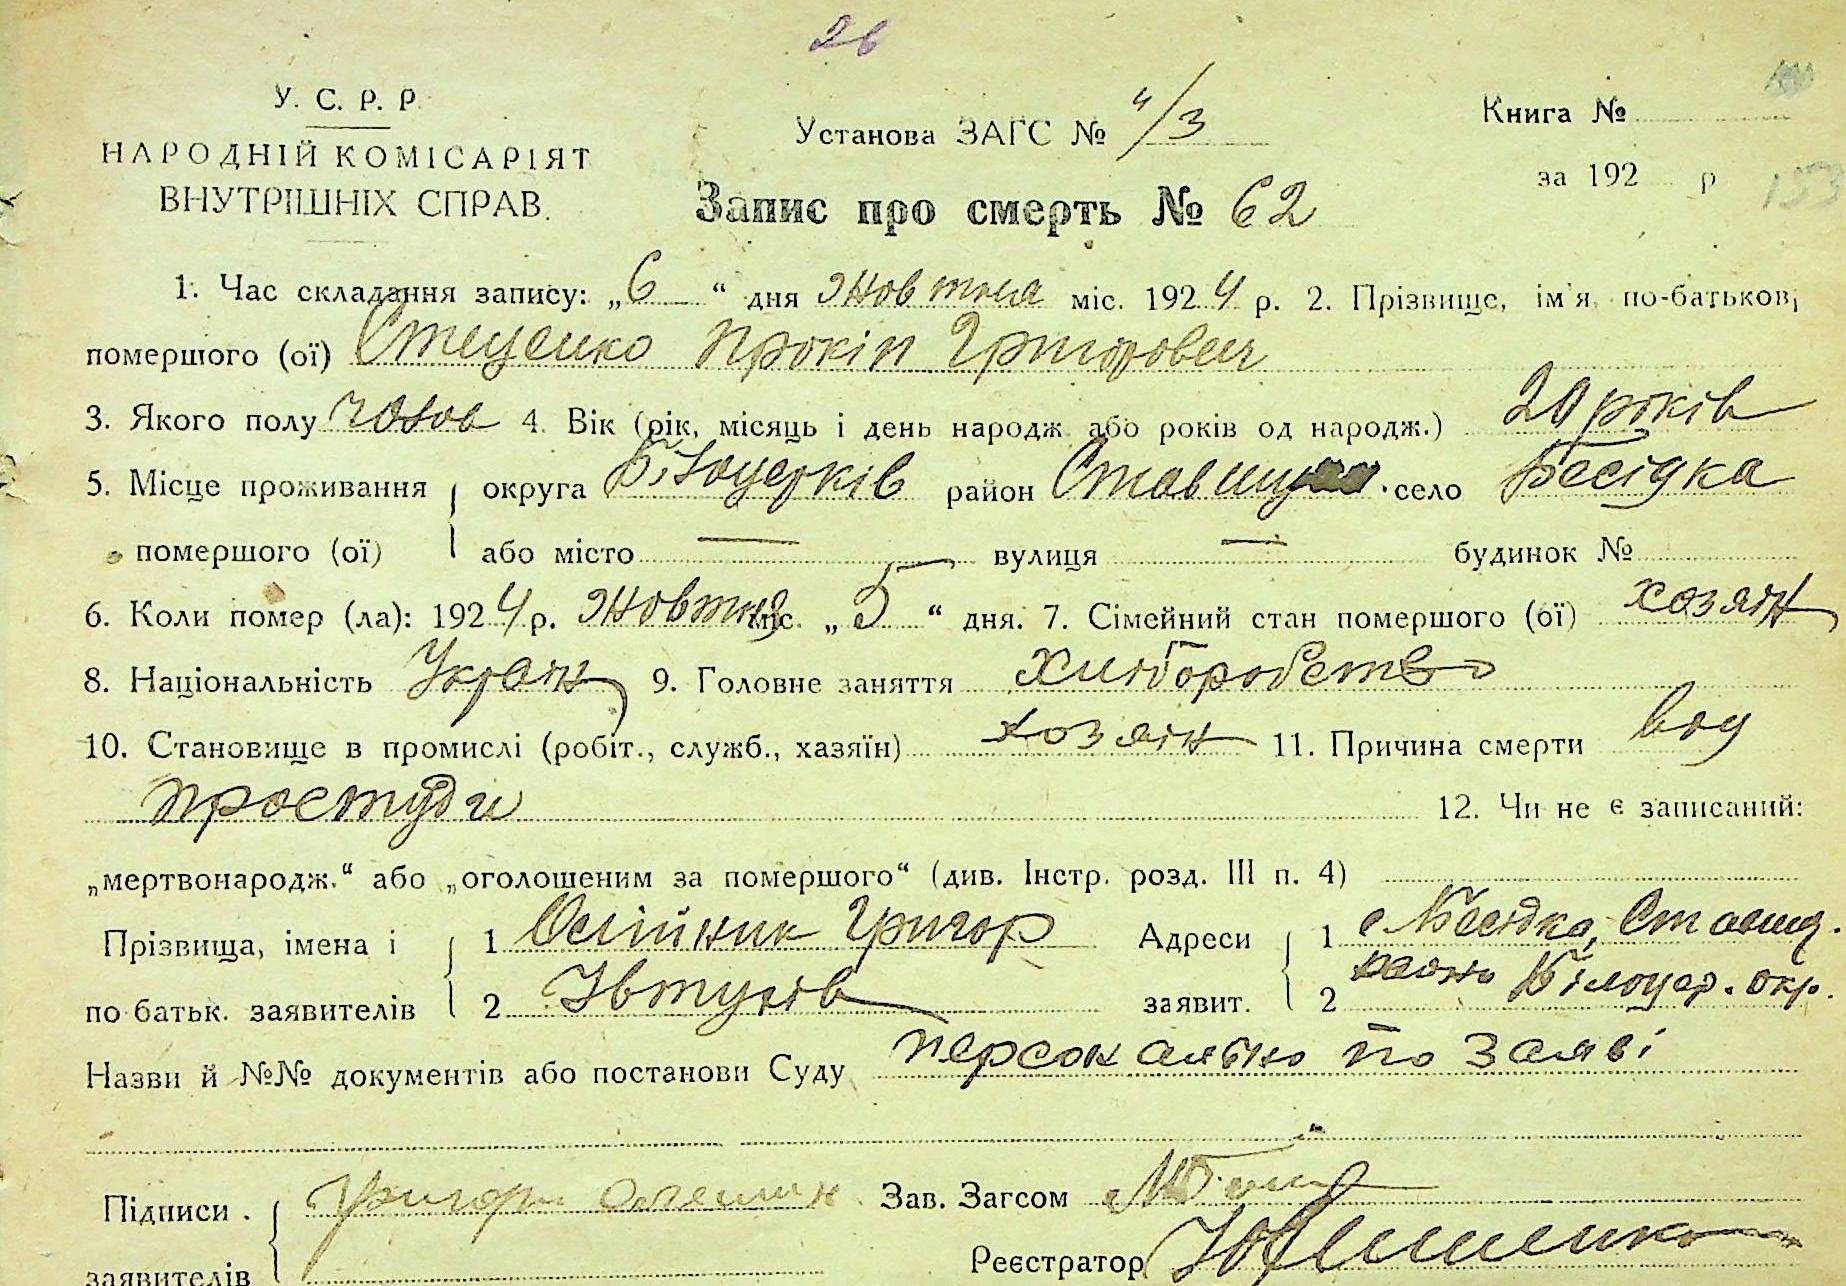 26
У. С. Р. Р.
НАРОДНІЙ КОМІСАРІЯТ
ВНУТРІШНІХ СПРАВ.
Установа ЗАГС № 4/3
Книга №
за 192 р
153
Запис про смерть № 62
1. Час складання запису: „6“ дня жовтня міс. 1924 р. 2. Прізвище, ім'я, по-батькові
помершого (ої) Стеценко Прокіп Григорович
3. Якого полу чолов 4. Вік (рік, місяць і день народж. або років од народж.) 20 років
5. Місце проживання округа Білоцерків район Ставищ село Бесідка
помершого (ої) або місто — вулиця — будинок №
6. Коли помер (ла): 1924 р. жовтня міс. „5“ дня. 7. Сімейний стан помершого (ої) хозяін
8. Національність Украін 9. Головне заняття хліборобство
10. Становище в промислі (робіт., служб., хазяїн) хозяін 11. Причина смерти вод
простуди 12. Чи не є записаний:
„мертвонародж.“ або „оголошеним за помершого“ (див. Інстр. розд. III п. 4)
Прізвища, імена і 1 Олійник Григор Адреси 1 с Бесідка, Ставищ.
по батьк. заявителів 2 Івтухів заявит. 2 Білоцер. окр.
Назви й №№ документів або постанови Суду персонально по заяві
Підписи Григори Олешик Зав. Загсом
заявителів Реєстратор